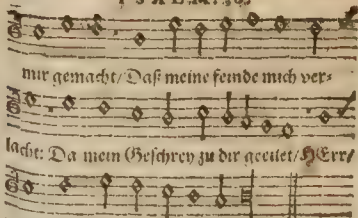 mir gemacht/Daß meine feinde mich ver-
lacht: Da mein Geschrey zu dir geeilet/HErr/